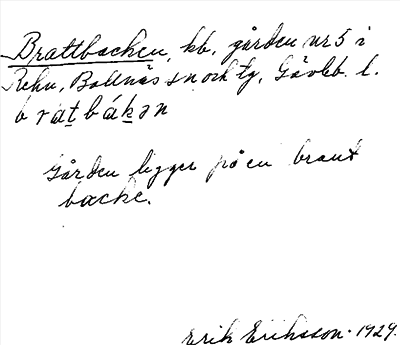 Brattbacken, kb. gården nr 5 i
Rehn, Bollnäs sn och tg, Gävleb. l.
bratbákən
Gården ligger på en brant
backe.
Erik Eriksson. 1929.